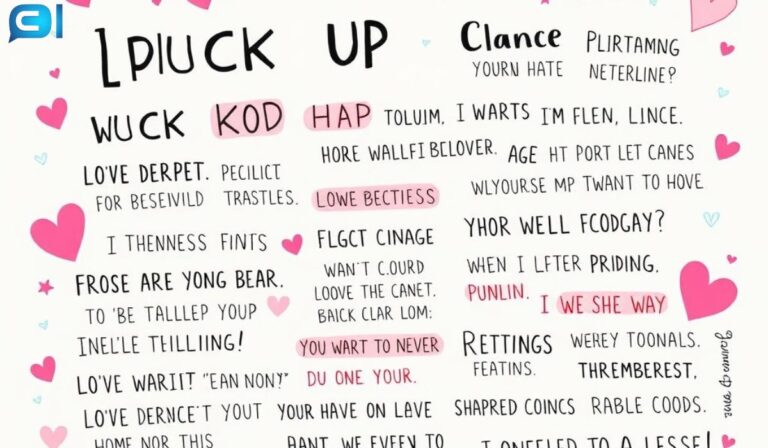 CI
LPIUCK UP
Clance PLIRTAMNG
YOURN HATE NETERLINE?
WUCK KOD HAP TOLUIM, I WARTS I'M FLEN, LINCE.
HORE WALLFI BELOVER. AGE HT PORT LET CANES
LO'VE DERPET. PECILICT
FOR BESEIVILD TRASTLES. LOWE BECTIESS WLYOURSE MP TWANT TO HOVE
I THENNESS FINTS FLGCT CINAGE YHOR WELL FCODGAY?
FROSE ARE YONG BEAR. WAN'T C.OURD WHEN I LFTER PRIDING.
TO 'BE TALLEP YOUP LOOVE THE CANET. PUNLIN. I WE SHE WAY
BAICK CLAR LOM:
INEL'LE THILLING! YOU WART TO NEVER RETTINGS WEREY TOONALS.
LO'VE WARIT! "EAN NONY" DU ONE YOUR. FEATINS. THREMBEREST,
LO'VE DERNC'T YOUT YOUR HAVE ON LAVE SHAPRED COINCS RABLE COODS.
HOME NOR THIS AANT WE EVEEY TO I ONEELED TO A LESSE!